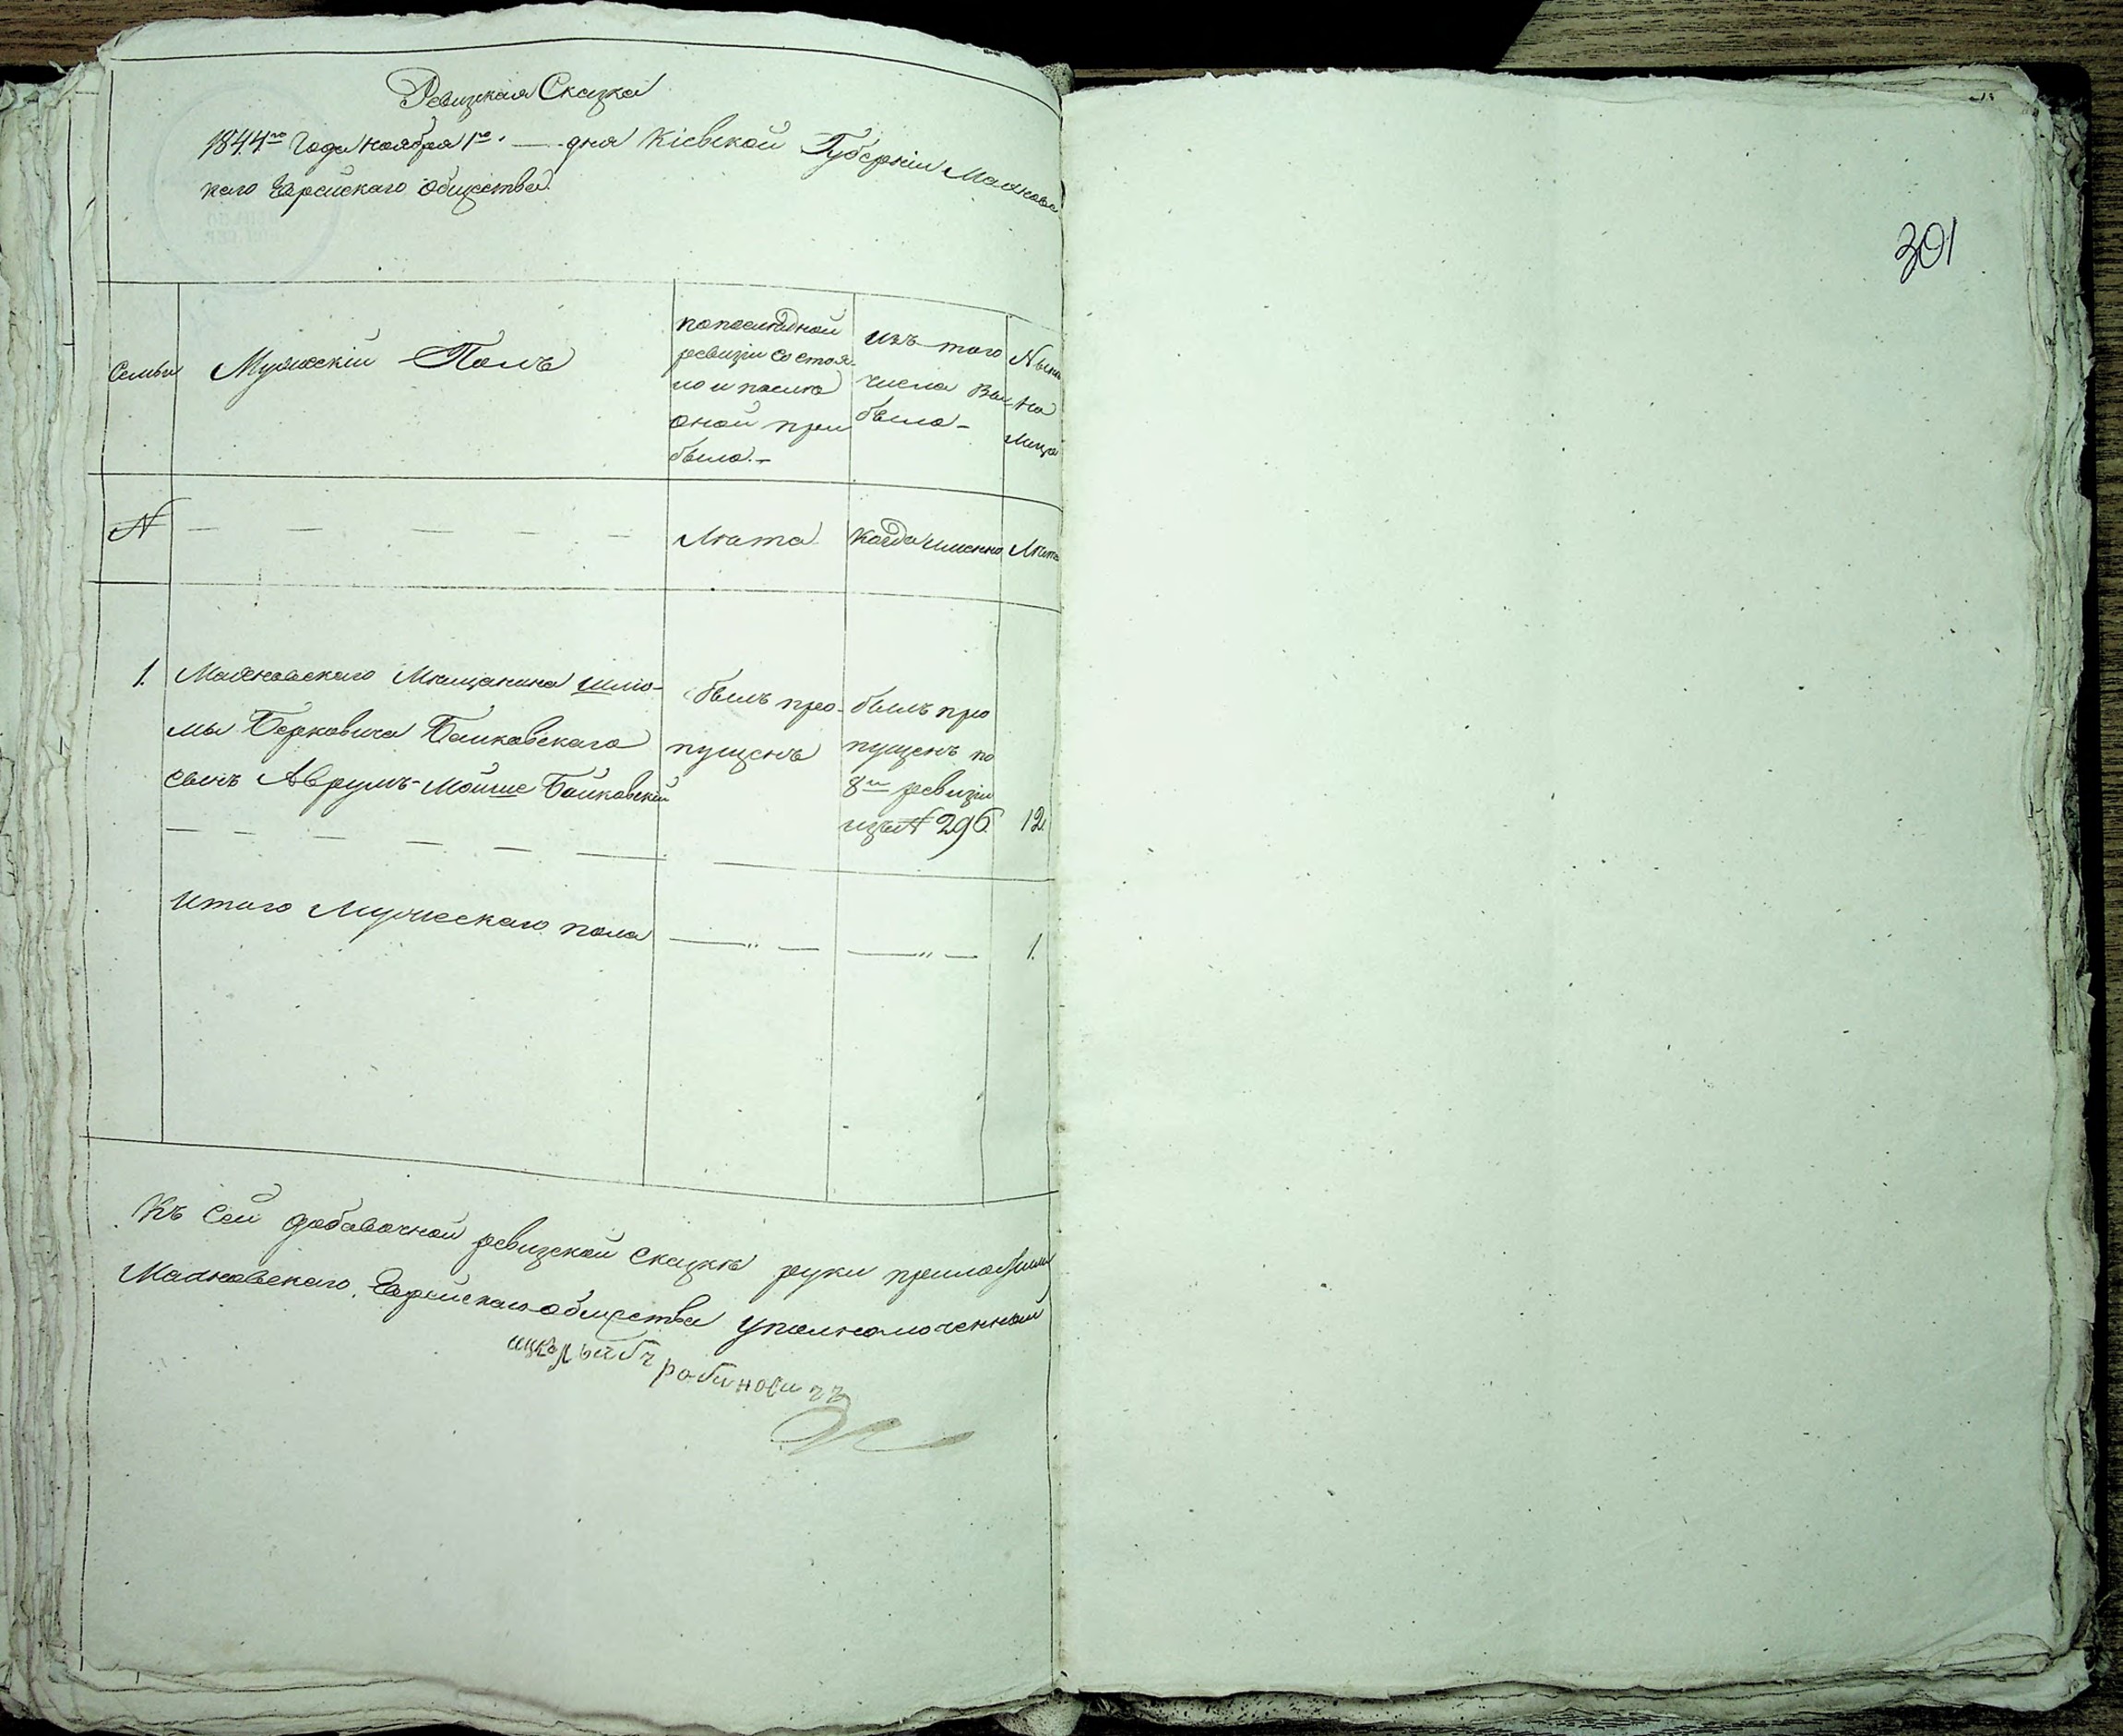 Ревизкая Сказка
1844го Года Ноября 1го дня Кіевской Губерніи Маяновс
каго Еврейскаго Общества.
301
Семьи
Мужескій Полъ
попоследной
ревизіи состоя
ло и после
оной при
было.
изъ того
числа вы
было
Ныне
на
лицо
№
Лѣта
Когда именно
Лѣта
1. Маяновскаго Мѣщанина Шлио-
мы Берковича Байковскаго
сынъ Аврумъ-Мойше Байковскій
былъ про-
пущенъ
былъ про
пущенъ по
8й ревизіи
изъ № 296
12.
Итого Мужескаго пола — „ — — „ — 1.
Къ сей добавочной ревизской сказкѣ руки приложили
Маяновскаго Еврейскаго общества уполномоченный
ицко лыйбъ рабиновичъ